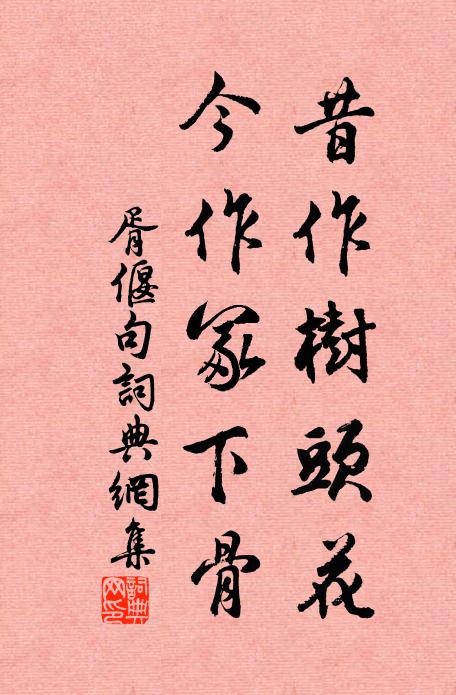 昔作樹頭花
今作冢下骨
胥偃句詞典網集
詞典網印